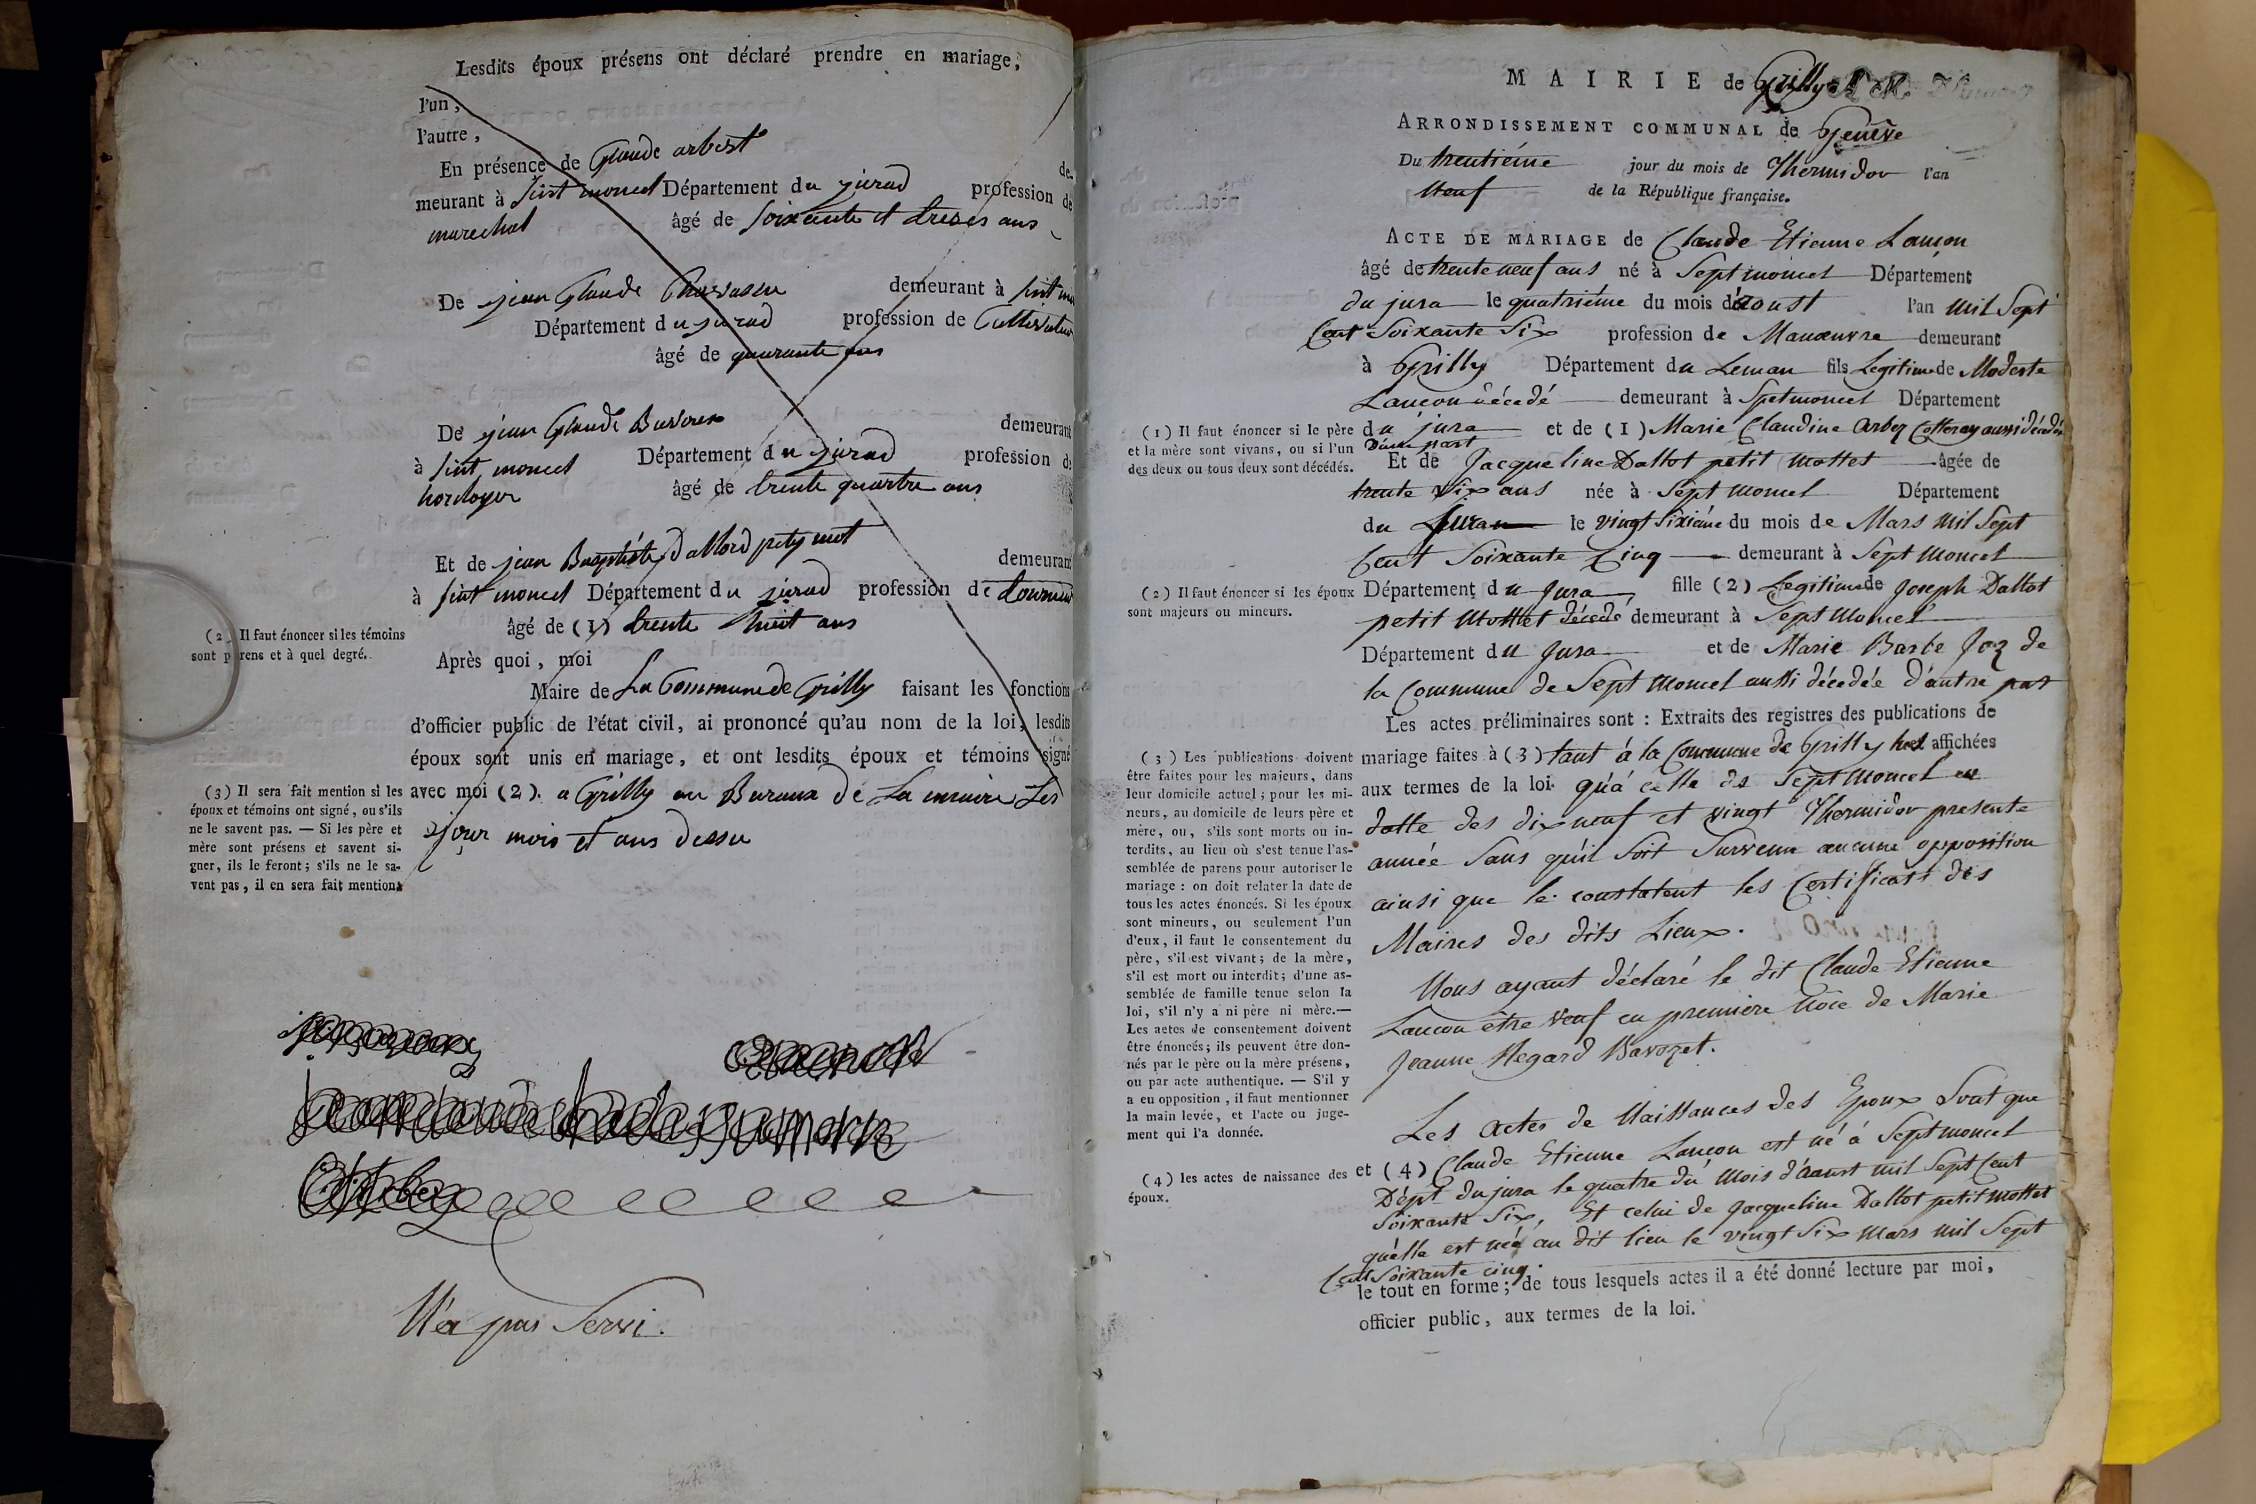 Lesdits époux présens ont déclaré prendre en mariage,
l'un,
l'autre,
En présence de Claude arbest de-
meurant à sint moncel Département du jurad profession de
marechal âgé de soixante et treses ans
De jean Claude demeurant à sint
Département du jurad profession de Cultivateur
âgé de quarante ans
De jean Claude demeurant
à sint moncel Département du jurad profession de
horloger âgé de trente quartre ans
Et de jean Baptiste dallod demeurant
à sint moncel Département du jurad profession de tourneur
âgé de (1) trente huit ans
Après quoi, moi
Maire de La Commune de Grilly faisant les fonctions
d'officier public de l'état civil, ai prononcé qu'au nom de la loi, lesdits
époux sont unis en mariage, et ont lesdits époux et témoins signé
avec moi (2). a Grilly au Buraux de La mairie Les
jour mois et ans dessu
(2) Il faut énoncer si les témoins
sont parens et à quel degré.
(3) Il sera fait mention si les
époux et témoins ont signé, ou s'ils
ne le savent pas. — Si les père et
mère sont présens et savent si-
gner, ils le feront; s'ils ne le sa-
vent pas, il en sera fait mention.
N'a pas Servi.
MAIRIE de Grilly
ARRONDISSEMENT COMMUNAL de Genève
Du trentiéme jour du mois de Thermidor l'an
Neuf de la République française.
ACTE DE MARIAGE de Claude Etienne Lançon
âgé de trente neuf ans né à Septmoncel Département
du jura le quatriéme du mois d'aoust l'an mil Sept
Cent Soixante Six profession de Manœuvre demeurant
à Grilly Département du Leman fils Legitime de Modeste
Lancon décedé demeurant à Spetmoncel Département
du jura et de (1) Marie Claudine Arbez Cotteray aussi décedée
D'une part
Et de Jacqueline Dallot petit Mottet âgée de
trente Six ans née à Sept Moncel Département
du Jura le vingt Sixiéme du mois de Mars Mil Sept
Cent Soixante Cinq demeurant à Sept Moncel
Département du Jura, fille (2) Legitime de Joseph Dallot
petit Mottet décedé demeurant à Sept Moncel
Département du Jura et de Marie Barbe Joz de
la Commune de Sept Moncel aussi décedée d'autre part
Les actes préliminaires sont : Extraits des registres des publications de
mariage faites à (3) tant á la Commune de Grilly affichées
aux termes de la loi qu'á celle de Sept Moncel en
datte des dix neuf et vingt Thermidor presente
année Sans qu'il Soit Survenu aucune opposition
ainsi que le constatent les Certificats des
Maires des dits Lieux.
Nous ayant déclaré le dit Claude Etienne
Lancon être veuf en premiere Noce de Marie
Jeanne Regard Bavozet.
Les actes de Naissances des Epoux Sont que
et (4) Claude Etienne Lançon est né á Septmoncel
Dépt du jura le quatre du Mois d'aoust mil Sept Cent
Soixante Six, Et celui de Jacqueline Dallot petit Mottet
qu'elle est née au dit lieu le vingt Six Mars Mil Sept
Cent Soixante cinq.
le tout en forme; de tous lesquels actes il a été donné lecture par moi,
officier public, aux termes de la loi.
(1) Il faut énoncer si le père
et la mère sont vivans, ou si l'un
des deux ou tous deux sont décédés.
(2) Il faut énoncer si les époux
sont majeurs ou mineurs.
(3) Les publications doivent
être faites pour les majeurs, dans
leur domicile actuel; pour les mi-
neurs, au domicile de leurs père et
mère, ou, s'ils sont morts ou in-
terdits, au lieu où s'est tenue l'as-
semblée de parens pour autoriser le
mariage : on doit relater la date de
tous les actes énoncés. Si les époux
sont mineurs, ou seulement l'un
d'eux, il faut le consentement du
père, s'il est vivant; de la mère,
s'il est mort ou interdit; d'une as-
semblée de famille tenue selon la
loi, s'il n'y a ni père ni mère.—
Les actes de consentement doivent
être énoncés; ils peuvent être don-
nés par le père ou la mère présens,
ou par acte authentique. — S'il y
a eu opposition, il faut mentionner
la main levée, et l'acte ou juge-
ment qui l'a donnée.
(4) les actes de naissance des
époux.